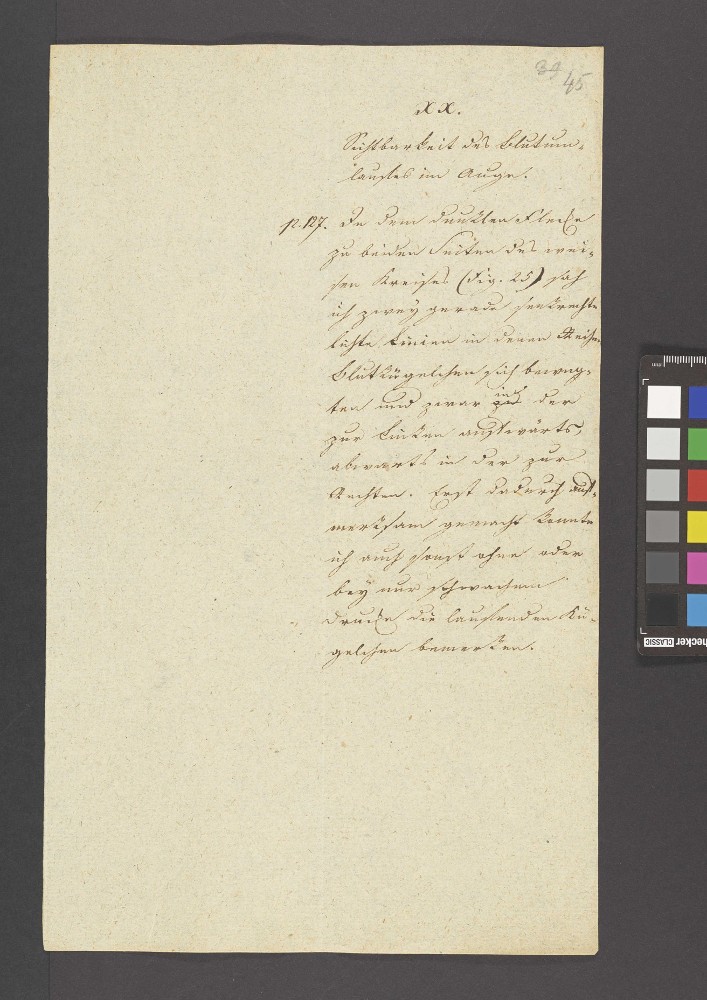 39 45
XX.
Sichtbarkeit des Blutum-
laufes im Auge.
p. 127. In dem dunklen Flecke
zu beiden Seiten des wei-
sen Kreises (Fig. 25) sah
ich zwey gerade senkrechte
lichte Linien in denen Reihen
Blutkügelchen sich beweg-
ten und zwar in der
zur Linken aufwärts,
abwärts in der zur
Rechten. Erst dadurch auf-
merksam gemacht konnte
ich auch sonst ohne oder
bey nur schwachem
Drucke die laufenden Kü-
gelchen bemerken.
checker CLASSIC
mm